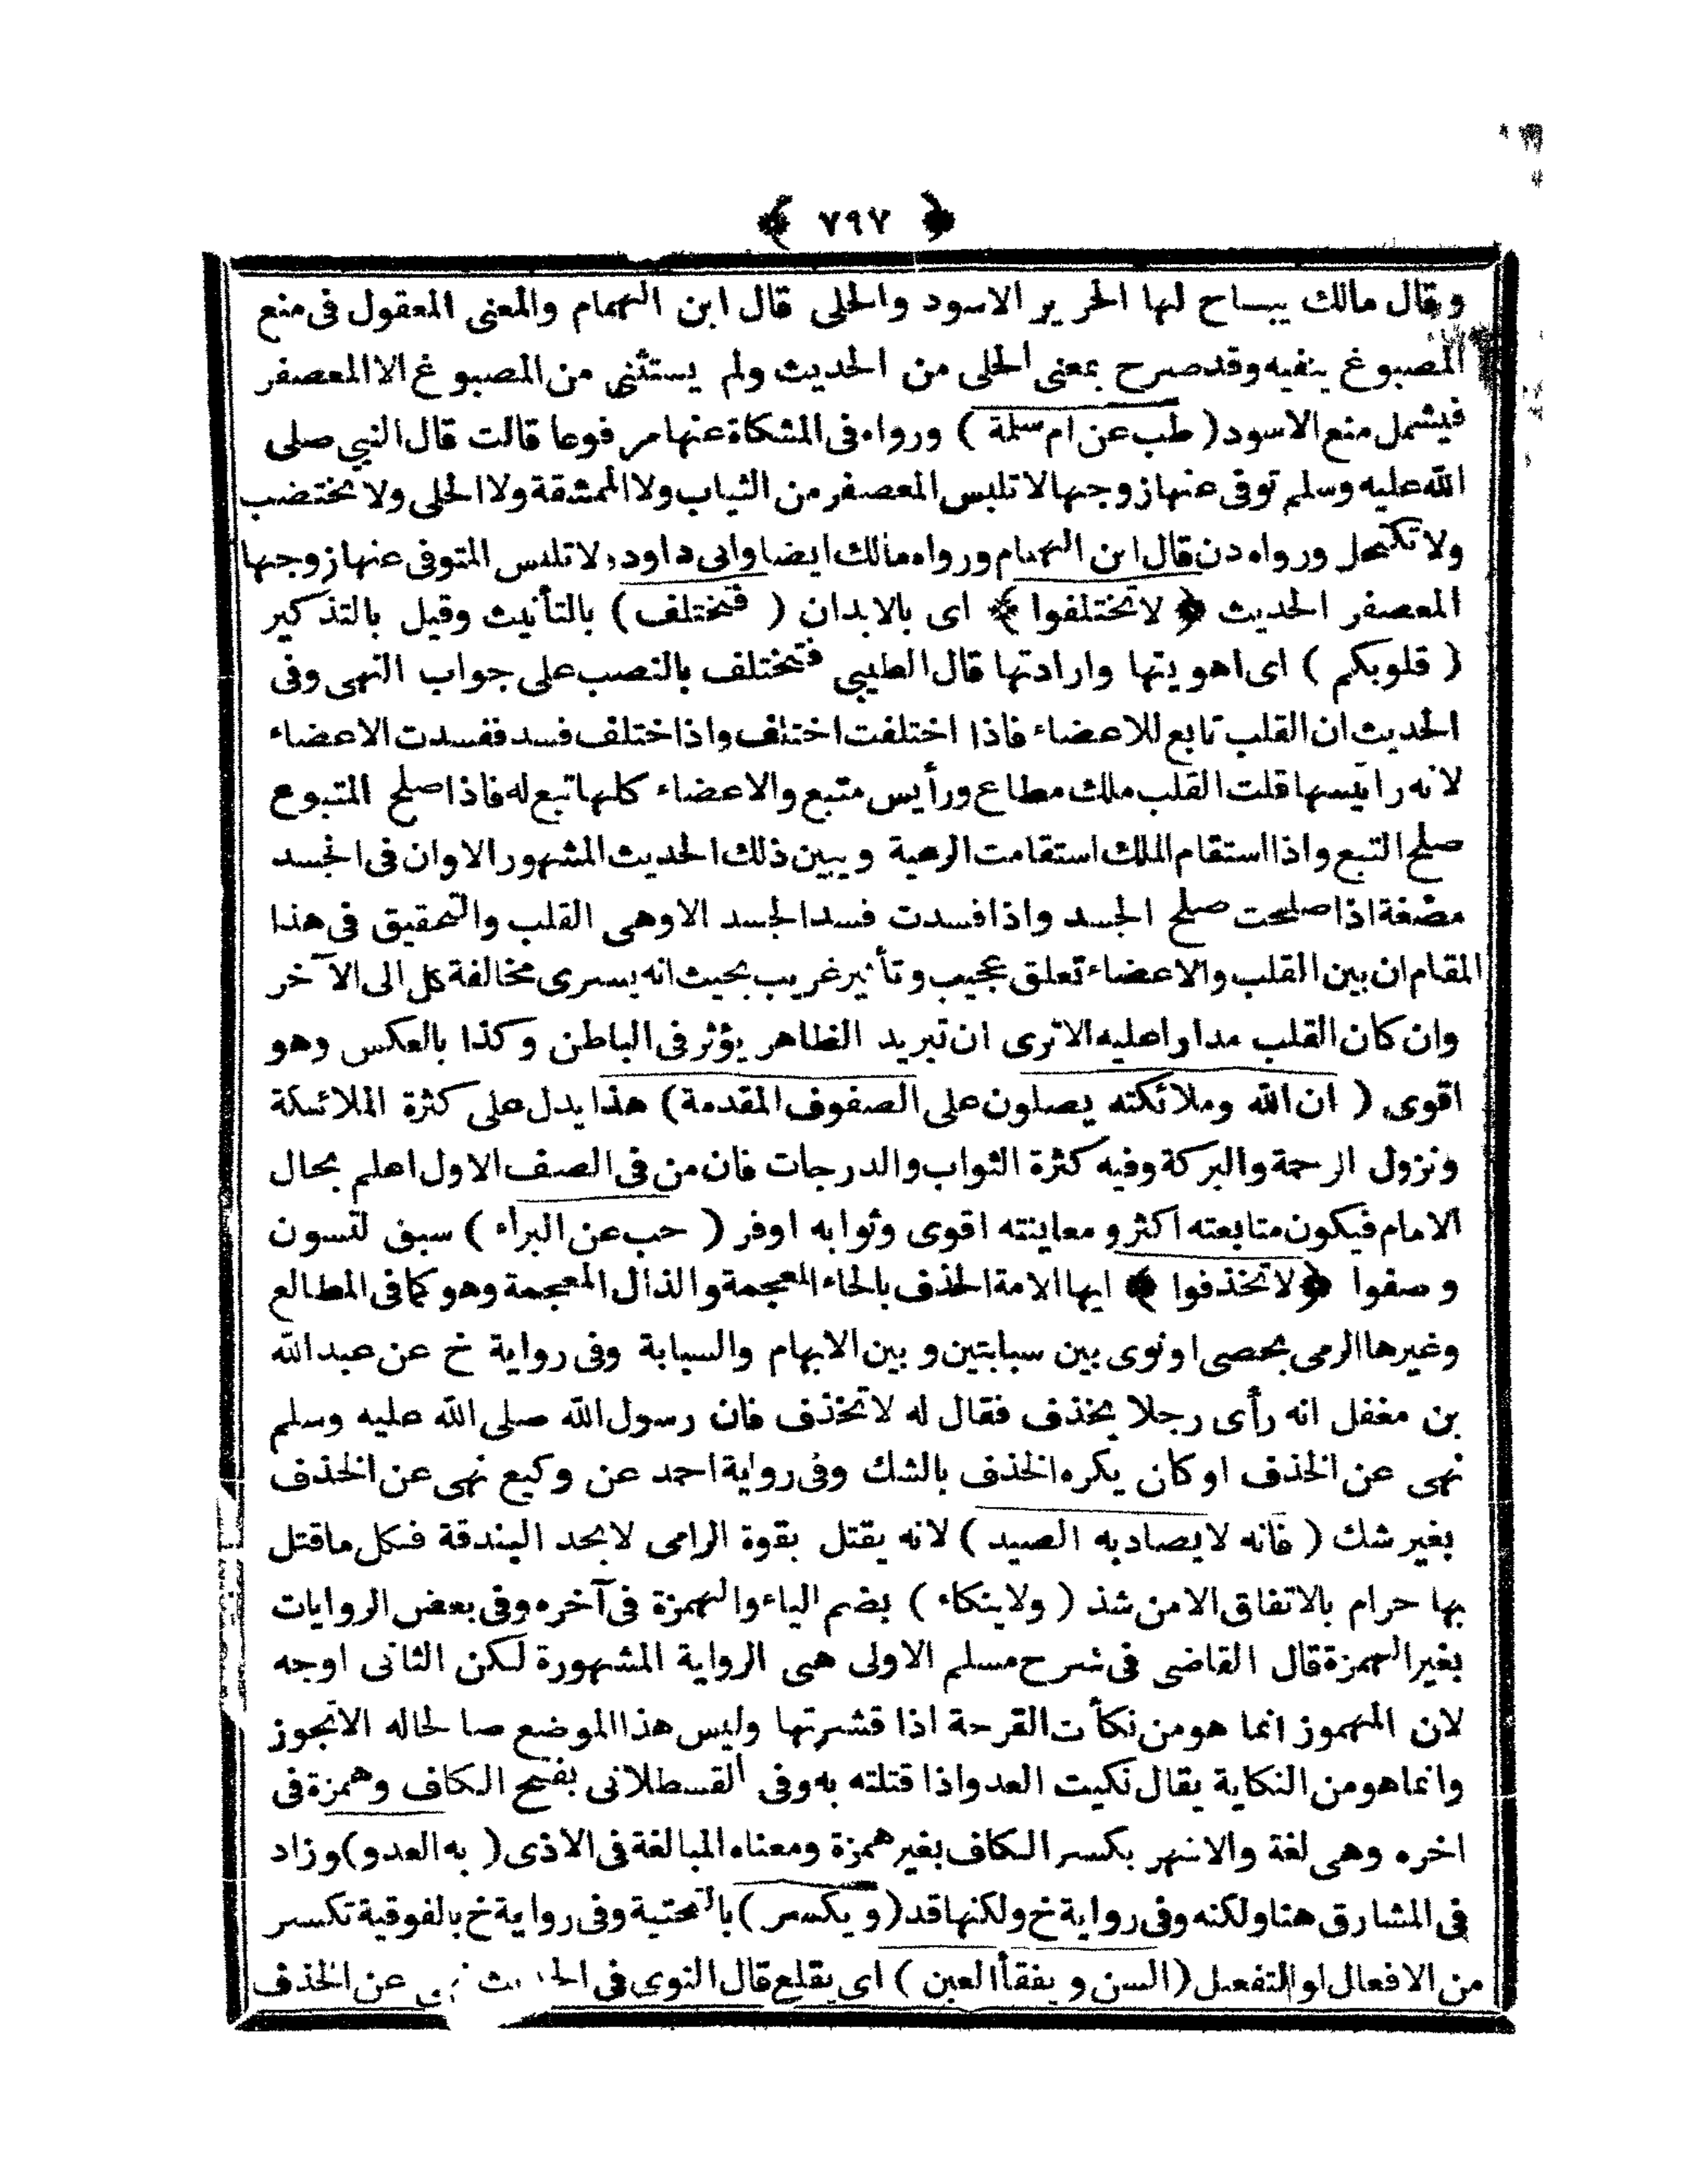 ﴿ ٧٩٧ ﴾
وقال مالك يباح لها الحرير الاسود والحلى قال ابن الهمام والمعنى المعقول فى منع
المصبوغ ينفيه وقد صرح بمعنى الحلى من الحديث ولم يستثنى من المصبوغ الا المعصفر
فيشمل منع الاسود ( طب عن ام سلمة ) ورواه فى المشكاة عنها مرفوعا قالت قال النبى صلى
الله عليه وسلم توفى عنها زوجها لا تلبس المعصفر من الثياب ولا الممشقة ولا الحلى ولا يختضب
ولا تكتحل ورواه دن قال ابن الهمام ورواه مالك ايضا وابى داود، لا تلبس المتوفى عنها زوجها
المعصفر الحديث ﴿ لا تختلفوا ﴾ اى بالابدان ( فتختلف ) بالتأنيث وقيل بالتذكير
( قلوبكم ) اى اهويتها وارادتها قال الطيبى فتختلف بالنصب على جواب النهى وفى
الحديث ان القلب تابع للاعضاء فاذا اختلفت اختلف واذا اختلف فسد ففسدت الاعضاء
لانه رأيسها قلت القلب ملك مطاع ورأيس متبع والاعضاء كلها تبع له فاذا صلح المتبوع
صلح التبع واذا استقام الملك استقامت الرعية ويبين ذلك الحديث المشهور الا وان فى الجسد
مضغة اذا صلحت صلح الجسد واذا فسدت فسد الجسد الا وهى القلب والتحقيق فى هذا
المقام ان بين القلب والاعضاء تعلق عجيب وتأثير غريب بحيث انه يسرى مخالفة كل الى الآخر
وان كان القلب مدارا عليه الا ترى ان تبريد الظاهر يؤثر فى الباطن وكذا بالعكس وهو
اقوى ( ان الله وملائكته يصلون على الصفوف المقدمة ) هذا يدل على كثرة الملائكة
ونزول الرحمة والبركة وفيه كثرة الثواب والدرجات فان من فى الصف الاول اعلم بحال
الامام فيكون متابعته اكثر و معاينته اقوى وثوابه اوفر ( حب عن البراء ) سبق لتسون
وصفوا ﴿ لا تخذفوا ﴾ ايها الامة الخذف بالخاء المعجمة والذال المعجمة وهو كما فى المطالع
وغيرها الرمى بحصى او نوى بين سبابتين و بين الابهام والسبابة وفى رواية خ عن عبد الله
بن مغفل انه رأى رجلا يخذف فقال له لا تخذف فان رسول الله صلى الله عليه وسلم
نهى عن الخذف او كان يكره الخذف بالشك وفى رواية احمد عن وكيع نهى عن الخذف
بغير شك ( فانه لا يصاد به الصيد ) لانه يقتل بقوة الرامى لا بحد البندقة فكل ما قتل
بها حرام بالاتفاق الا من شذ ( ولا ينكاء ) بضم الياء والهمزة فى آخره وفى بعض الروايات
بغير الهمزة قال القاضى فى شرح مسلم الاولى هى الرواية المشهورة لكن الثانى اوجه
لان المهموز انما هو من نكأت القرحة اذا قشرتها وليس هذا الموضع صالحاله الا تجوز
وانما هو من النكاية يقال نكيت العدو اذا قتلته به وفى القسطلانى بفتح الكاف وهمزة فى
اخره وهى لغة والاشهر بكسر الكاف بغير همزة ومعناه المبالغة فى الاذى ( به العدو ) وزاد
فى المشارق هنا ولكنه وفى رواية خ ولكنها قد ( و يكسر ) بالتحتية وفى رواية خ بالفوقية تكسر
من الافعال او التفعل ( السن و يفقأ العين ) اى يقلع قال النوى فى عن الخذف